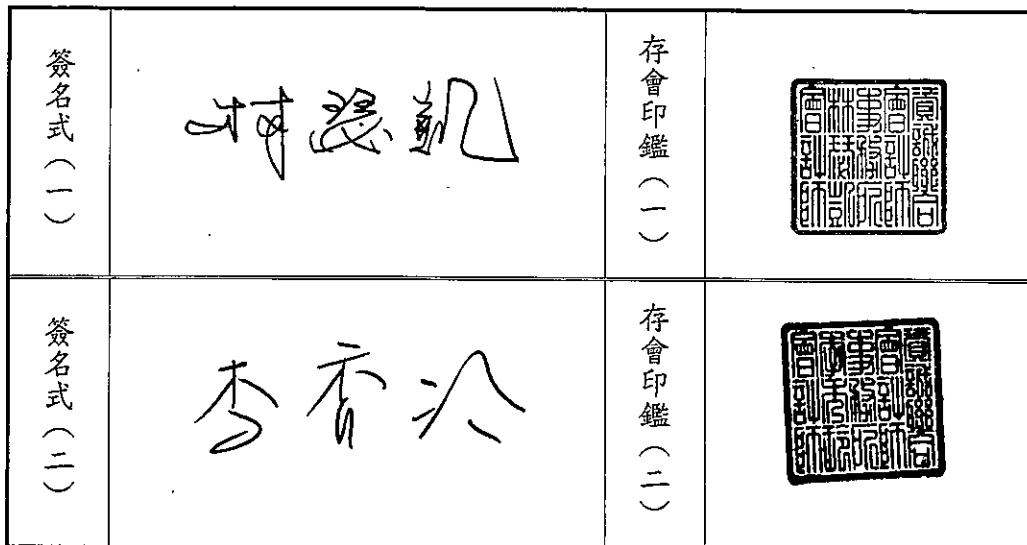 簽名式(一)
林瑟凱
存會印鑑(一)
資誠聯合
會計師
事務所
林瑟凱
會計師
簽名式(二)
存會印鑑(二)
資誠聯合
會計師
事務所
會計師